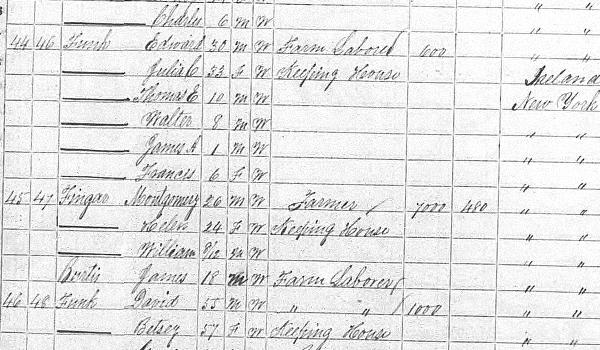 Charles 6 M W " "
44 46 Funk Edward 30 M W Farm Laborer 600 " "
Julia C 33 F W Keeping House Ireland
Thomas E 10 M W New York
Walter 8 M W " "
James A 1 M W " "
Frances 6 F W " "
45 47 Fingar Montgomery 26 M W Farmer 7000 480 " "
Helen 24 F W Keeping House " "
William 9/12 M W " "
James 18 M W Farm Laborer " "
46 48 Funk David 55 M W " " 1000 " "
Betsey 57 F W Keeping House " "